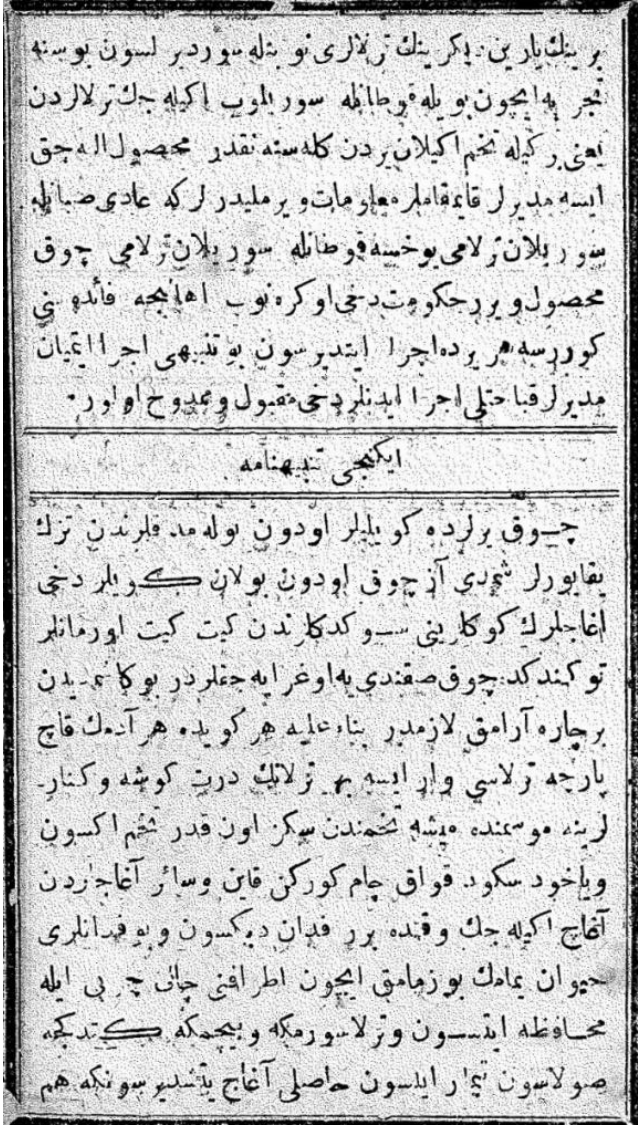 بر ينك يارين ديكر ينك ترلالرى نو بتله سوردير لسون بو سنه
تجر به ايچون بو يله قوطانله سور يلوب اكيله جك ترلالردن
يعنى بر كيله تخم اكيلان يردن كله سنه نقدر محصول اله جق
ايسه مديرلر قائمقاملر معلومات ويرمليدرلركه عادى صبانله
سور يلان ترلامى يوخسه قوطانله سور يلان ترلامى چوق
محصول ويرر حكومت دخى اوكره نوب اهاليجه فائده سنى
كوررسه هر يرده اجرا ايتديرسون بو تنبيهى اجرا ايتميان
مديرلر قباحتلى اجرا ايدنلر دخى مقبول وممدوح اولور ٠
ايكنجى تنبيهنامه
چوق يرلرده كويليلر اودون بوله مد قلرندن تزك
يقايورلر شمدى آز چوق اودون بولان كويلر دخى
اغاجلرك كوكلرينى سوكدكلرندن كيت كيت اورمانلر
توكندكده چوق صقندى يه اوغرايه جقلردر بوكا شمديدن
برچاره آرامق لازمدر بناء عليه هر كويده هر آدمك قاچ
پارچه ترلاسى وار ايسه بهر ترلانك درت كوشه وكنار ـ
لرينه موسمنده ميشه تخمندن سكز اون قدر تخم اكسون
وياخود سكود قواق چام كوركن قاين وسائر آغاجلردن
آغاچ اكيله جك وقتده برر فدان ديكسون وبو فدانلرى
حيوان يمامك بوزمامق ايچون اطرافنى چالى چر پى ايله
محافظه ايتسون وترلا سورمكه وبيچمكه كتدكجه
صولاسون تيمار ايلسون حاصلى آغاج يتشديرسونكه هم